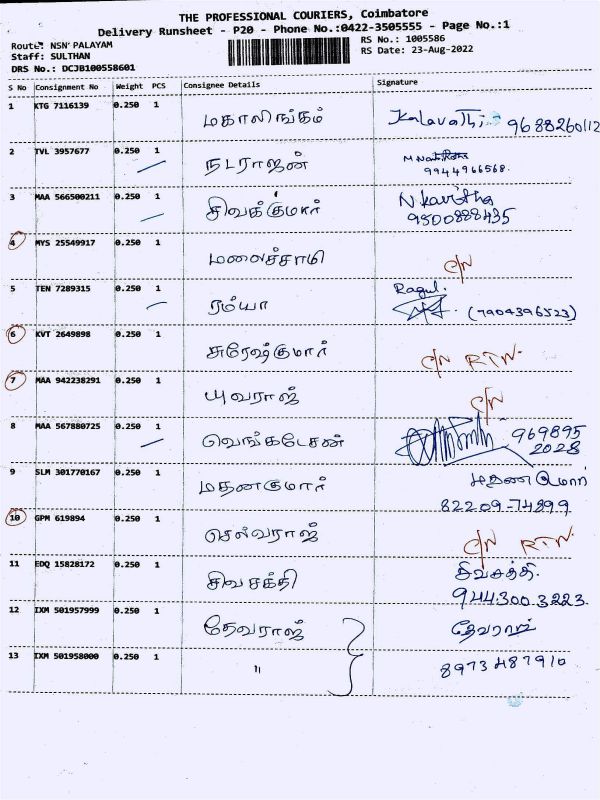 THE PROFESSIONAL COURIERS, Coimbatore
Delivery Runsheet - P20 - Phone No.:0422-3505555 - Page No.:1
Route: NSN PALAYAM
RS No.: 1005586
Staff: SULTHAN
RS Date: 23-Aug-2022
DRS No.: DCJB100558601
S No Consignment No Weight PCS Consignee Details Signature
1 KTG 7116139 0.250 1 மகாலிங்கம் Kalavathi 9688260112
2 TVL 3957677 0.250 1 நடராஜன்
9944966568.
3 MAA 566500211 0.250 1 சிவக்குமார் N Kavitha
9500888435
4 MYS 25549917 0.250 1 மலைச்சாமி C/N
5 TEN 7289315 0.250 1 ரம்யா Ragul.
(7904396523)
6 KVT 2649898 0.250 1 சுரேஷ்குமார் C/N RTN.
7 MAA 942238291 0.250 1 யுவராஜ் C/N
8 MAA 567880725 0.250 1 வெங்கடேசன்969895
2028
9 SLM 301770167 0.250 1 மதனகுமார்
82209-74899
10 GPM 619894 0.250 1 செல்வராஜ் C/N RTN.
11 EDQ 15828172 0.250 1 சிவசக்தி சிவசக்தி.
944300 3223
12 IXM 501957999 0.250 1 தேவராஜ் தேவராஜ்
13 IXM 501958000 0.250 1 " 8973487910